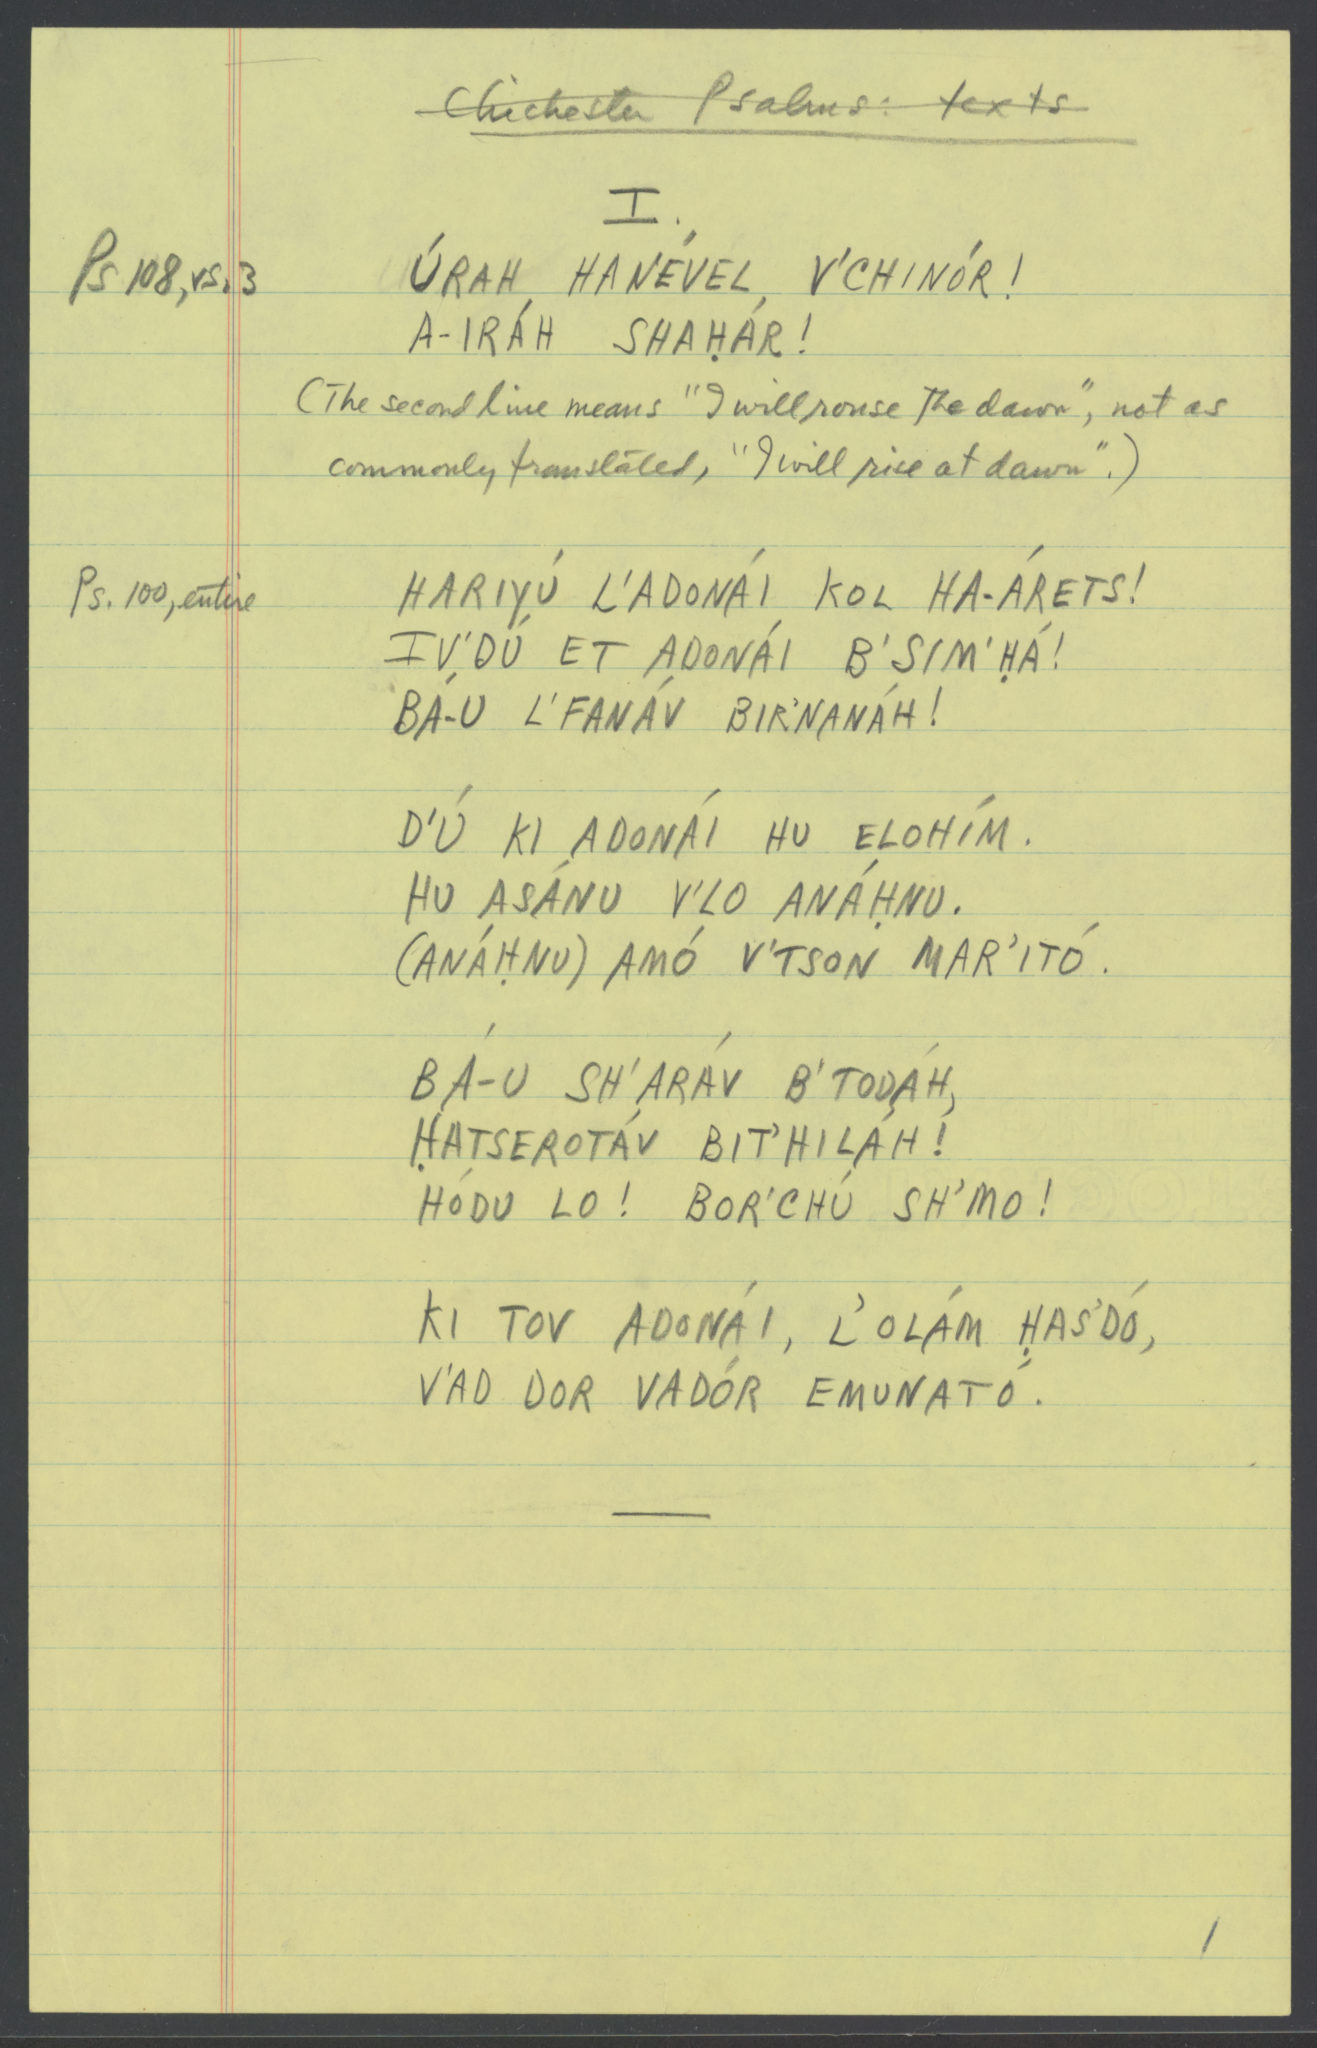 Chichester Psalms: texts
I.
Ps 108, vs. 3
ÚRAH, HANÉVEL, V'CHINÓR!
A-IRÁH SHAḤÁR!
(The second line means "I will rouse the dawn", not as
commonly translated, "I will rise at dawn".)
Ps. 100, entire
HARIYÚ L'ADONÁI KOL HA-ÁRETS!
IV'DÚ ET ADONÁI B'SIM'ḤÁ!
BÁ-U L'FANÁV BIR'NANÁH!
D'Ú KI ADONÁI HU ELOHÍM.
HU ASÁNU V'LO ANÁḤNU.
(ANÁḤNU) AMÓ V'TSON MAR'ITÓ.
BÁ-U SH'ARÁV B'TODÁH,
ḤATSEROTÁV BIT'HILÁH!
HÓDU LO! BOR'CHÚ SH'MO!
KI TOV ADONÁI, L'OLÁM ḤAS'DÓ,
V'AD DOR VADÓR EMUNATÓ.
1